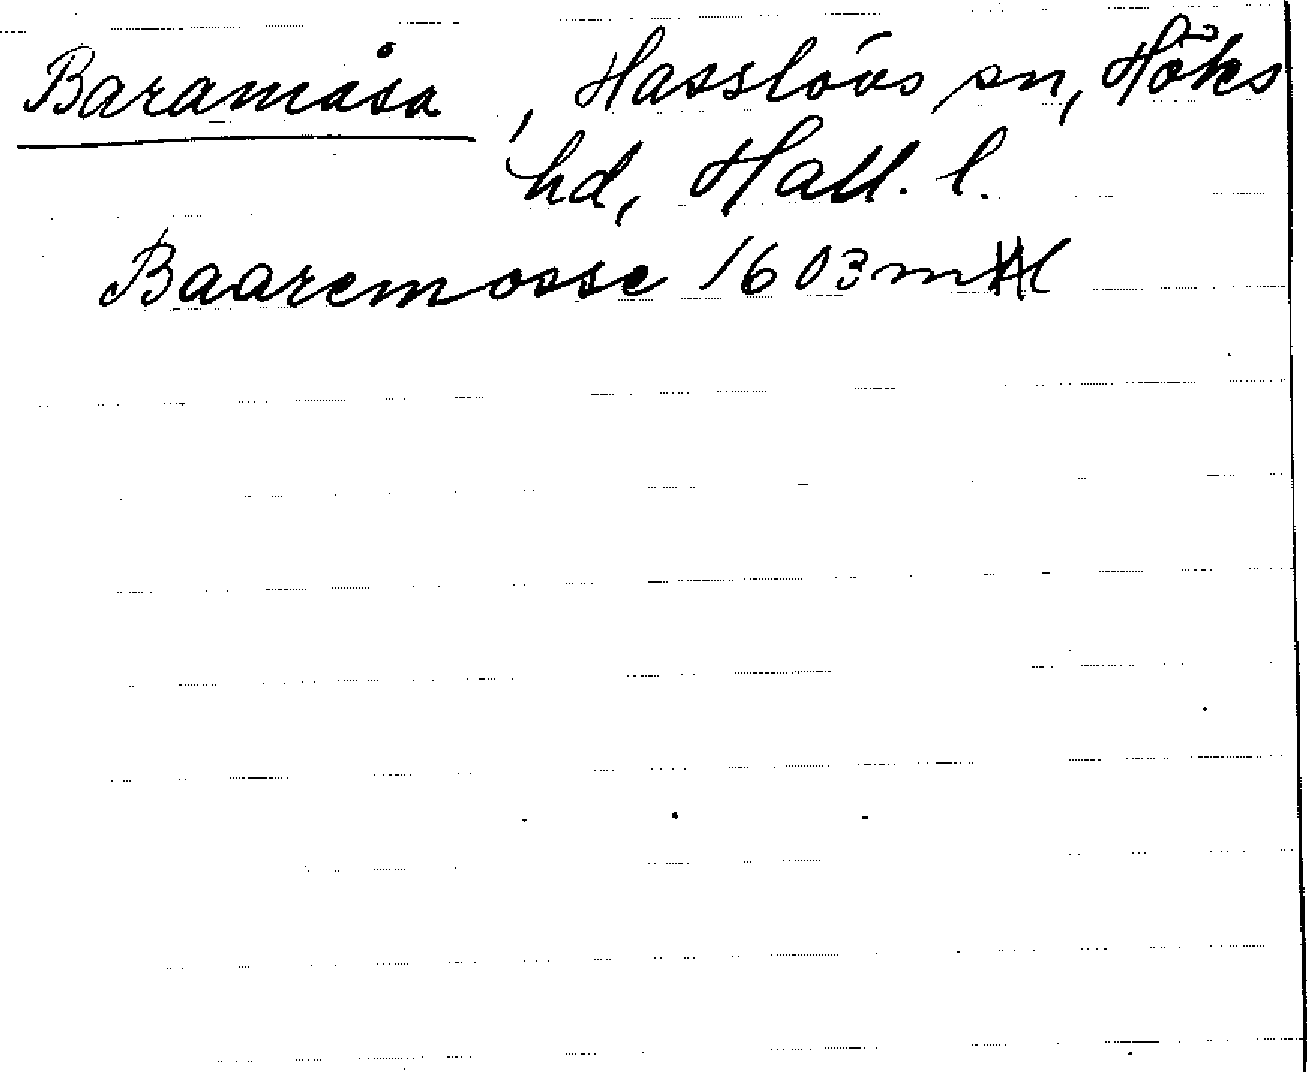 Baramåsa, Hasslövs sn, Höks
hd, Hall. l.
Baaremosse 1603 m